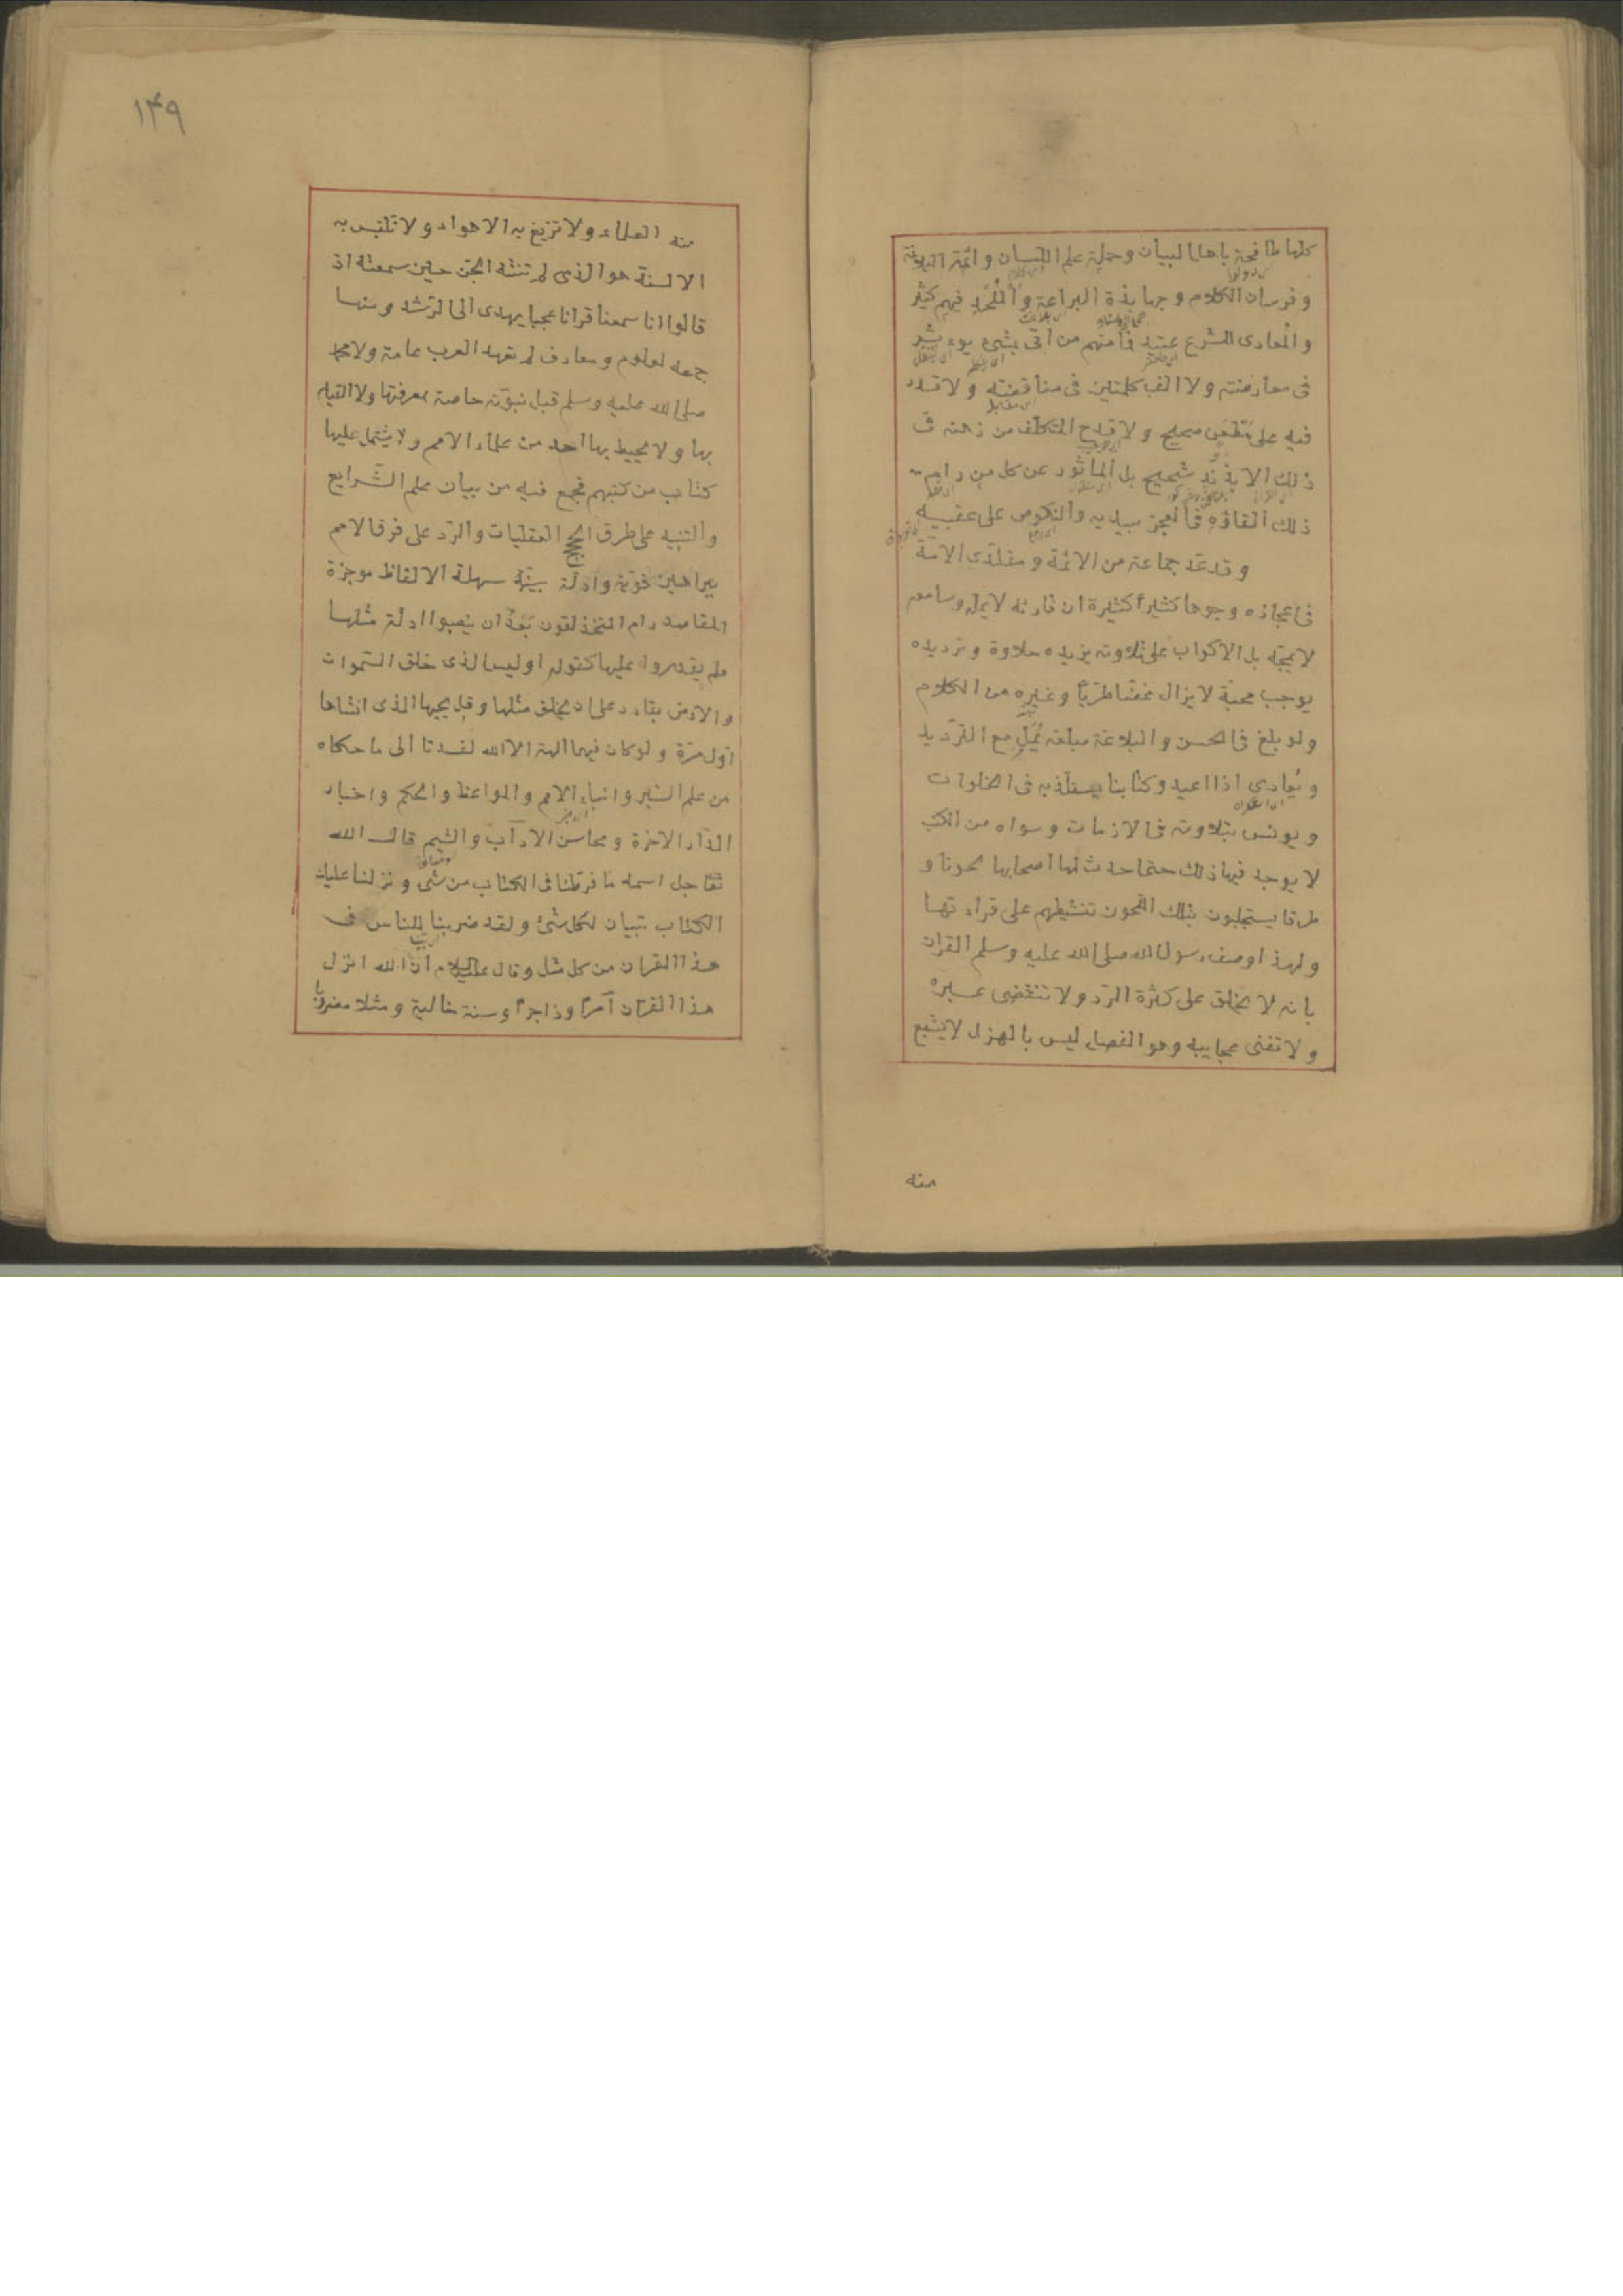 كلها طافحة باهل البيان وحملة علم اللسان وائمة البلاغة
وفرسان الكلام وجهابذة البراعة والملحد فيهم كثير
والمعادى للشرع عتيد فما منهم من اتى بشئ يوءثر
فى معارضته ولا الف كلمتين فى مناقضته ولا قدر
فيه على مطعن صحيح ولا قدح المتكلف من ذهنه فى
ذلك الا بزند شحيح بل المأثور عن كل من رام
ذلك القاؤه فى العجز بيديه والنكوص على عقبيه
وقد عد جماعة من الائمة ومقلدى الامة
فى اعجازه وجوها كثيرا كثيرة ان قارئه لا يمله وسامعه
لا يمجه بل الاكواب على تلاوته يزيده حلاوة وترديده
يوجب محبة لا يزال غضا طريا وغيره من الكلام
ولو بلغ فى الحسن والبلاغة مبلغه يمل مع الترديد
ويعادى اذا اعيد وكتابنا يستلذ به فى الخلوات
ويونس بتلاوته فى الازمات وسواه من الكتب
لا يوجد فيها ذلك حتى احدث لها اصحابها لحونا و
طرقا يستجلبون بتلك اللحون تنشيطهم على قراءتها
ولهذا وصف رسول الله صلى الله عليه وسلم القران
بانه لا يخلق على كثرة الرد ولا تنقضى عبره
ولا تفنى عجايبه وهو الفصل ليس بالهزل لا يشبع
منه
١٤٩
منه العلماء ولا تزيغ به الاهواء ولا تلتبس به
الالسنة هو الذى لم تنته الجن حين سمعته اذ
قالوا انا سمعنا قرانا عجبا يهدى الى الرشد ومنها
جمعه لعلوم ومعارف لم تعهد العرب عامة ولا محمد
صلى الله عليه وسلم قبل نبوته خاصة بمعرفتها ولا القيام
بها ولا يحيط بها احد من علماء الامم ولا يشتمل عليها
كتاب من كتبهم فجمع فيه من بيان علم الشرايع
والتنبيه على طرق الحجج العقليات والرد على فرق الامم
ببراهين قوية وادلة بينة سهلة الالفاظ موجزة
المقاصد رام المتخذلقون بعد ان ينصبوا ادلة مثلها
فلم يقدروا عليها كقوله اوليس الذى خلق السموات
والارض بقادر على ان يخلق مثلها وقل يحيها الذى انشاها
اول مرة ولو كان فيهما الهة الا الله لفسدتا الى ما حكاه
من علم السير وانباء الامم والمواعظ والحكم واخبار
الدار الاخرة ومحاسن الادآب والشيم قال الله
تعا جل اسمه ما فرطنا فى الكتاب من شئ ونزلنا عليك
الكتاب تبيان لكل شئ ولقد ضربنا للناس فى
هذا القران من كل مثل وقال عليه السلام ان الله انزل
هذا القران آمرا وزاجرا وسنة خالية ومثلا مضروبا